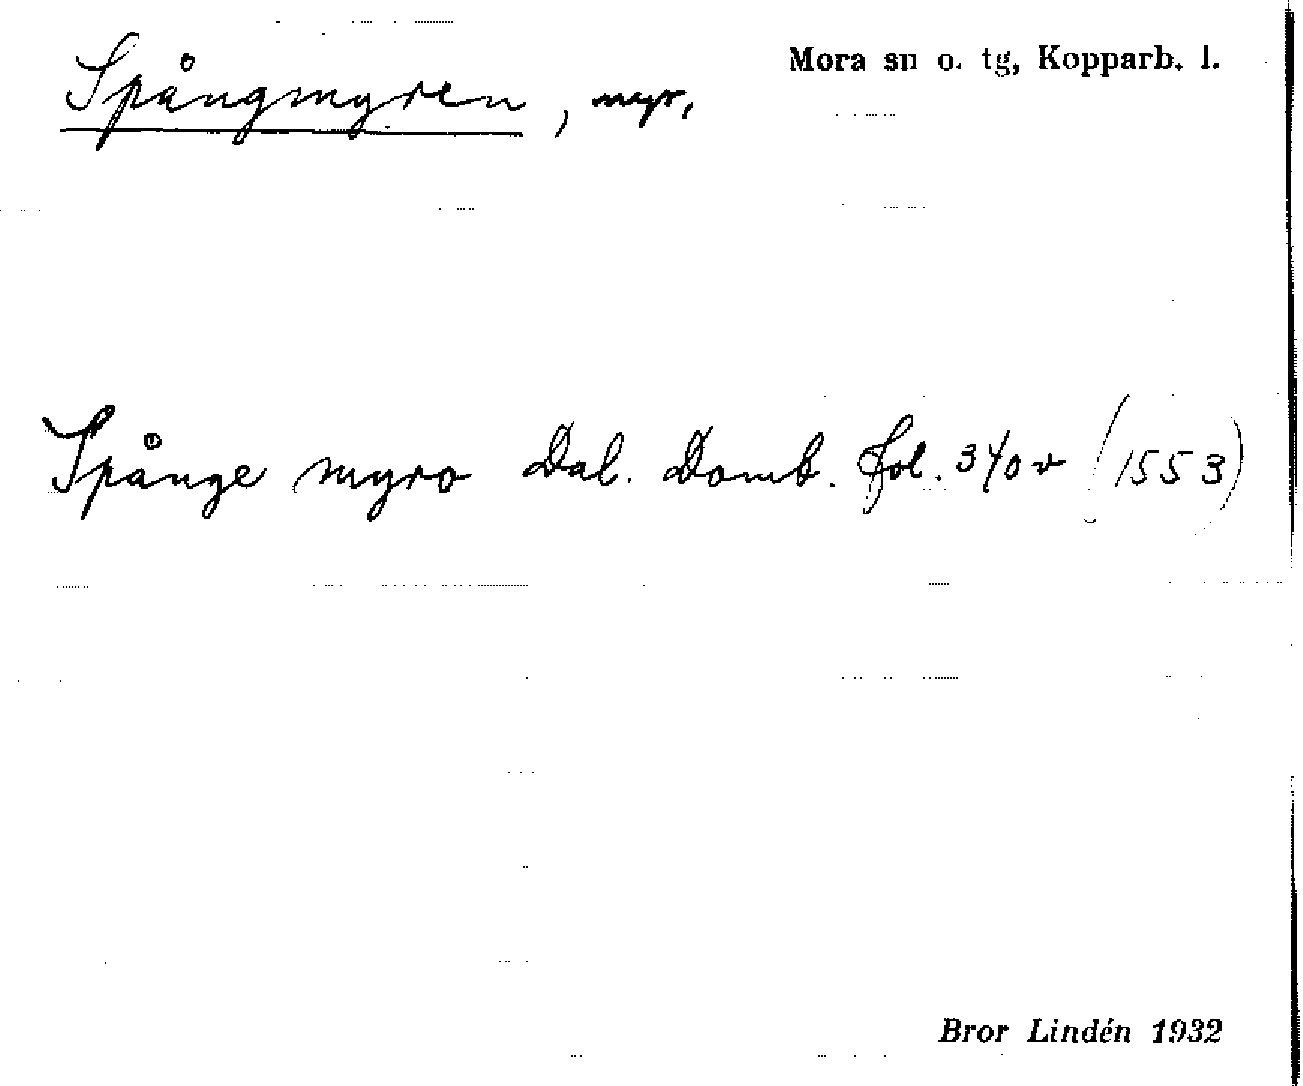 Spångmyren, myr,
Mora sn o. tg, Kopparb. l.
Spånge myro Dal. Domb. fol. 340 v (1553)
Bror Lindén 1932